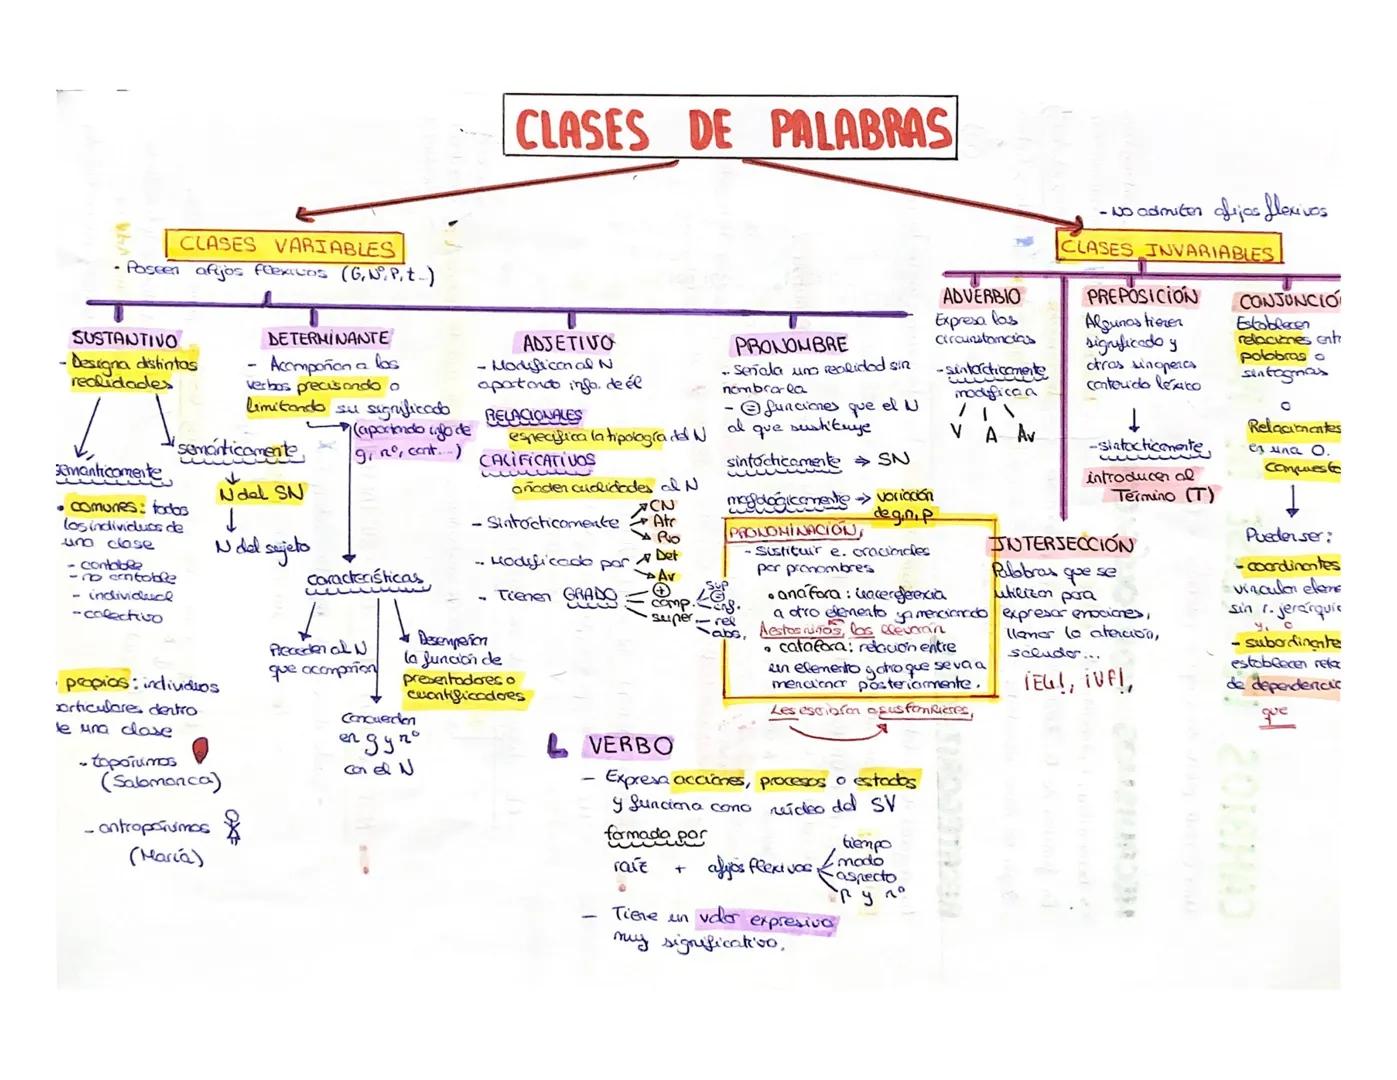 CLASES DE PALABRAS
CLASES VARIABLES
- Poseen afijos flexivos (G, Nº, P, t...)
SUSTANTIVO
- Designa distintas
realidades
semánticamente
• comunes: todos
los individuos de
una clase
- contable
- no contable
- individual
- colectivo
propios: individuos
particulares dentro
de una clase
- topónimos
(Salamanca)
- antropónimos
(María)
semánticamente
N del SN
N del sujeto
DETERMINANTE
- Acompañan a los
verbos precisando o
limitando su significado
(aportando info de
g, nº, cant...)
características
Preceden al N
que acompañan
Concuerdan
en g y nº
con el N
Desempeñan
la función de
presentadores o
cuantificadores
ADJETIVO
- Modifican al N
aportando info. de él
RELACIONALES
especifica la tipología del N
CALIFICATIVOS
añaden cualidades al N
- Sintácticamente
CN
Atr
Pvo
- Modificado por
Det
Av
- Tienen GRADO
+
comp.
super.
sup
=
inf.
rel
abs.
PRONOMBRE
- Señala una realidad sin
nombrarla
- = funciones que el N
al que sustituye
sintácticamente → SN
morfológicamente → variación
de g, n, p
PRONOMINACIÓN,
- Sustituir e. oracionales
por pronombres
• anáfora: hacer referencia
a otro elemento ya mencionado
A estos niños, los llevarán
• catáfora: relación entre
un elemento y otro que se va a
mencionar posteriormente.
Les escribirán a sus familiares,
VERBO
- Expresa acciones, procesos o estados
y funciona como núcleo del SV
formada por
raíz + afijos flexivos
tiempo
modo
aspecto
p y nº
- Tiene un valor expresivo
muy significativo.
- No admiten afijos flexivos
CLASES INVARIABLES
ADVERBIO
Expresa las
circunstancias
- sintácticamente
modifica a
V A Av
PREPOSICIÓN
Algunas tienen
significado y
otras sin apenas
contenido léxico
- sintácticamente
introducen al
Término (T)
INTERJECCIÓN
Palabras que se
utilizan para
expresar emociones,
llamar la atención,
saludar...
¡Eh!, ¡Uf!,
CONJUNCIÓ
Establecen
relaciones ent
palabras o
sintagmas
o
Relacionantes
es una O.
compuesta
Pueden ser:
- coordinantes
vinculan eleme
sin r. jerárquic
y, o
- subordinante
establecen rela
de dependencia
que